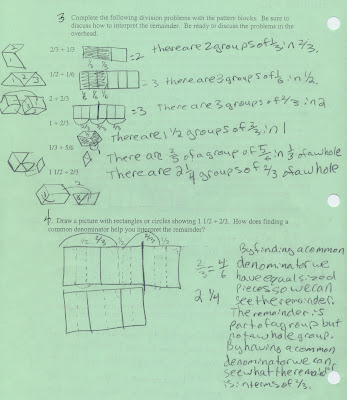 3 Complete the following division problems with the pattern blocks. Be sure to
discuss how to interpret the remainder. Be ready to discuss the problems in the
overhead.
2/3 ÷ 1/3 = 2 there are 2 groups of 1/3 in 2/3.
1/2 ÷ 1/6 = 3 there are 3 groups of 1/6 in 1/2.
2 ÷ 2/3 = 3 There are 3 groups of 2/3 in 2
1 ÷ 2/3 There are 1 1/2 groups of 2/3 in 1
1/3 ÷ 5/6 There are 2/5 of a group of 5/6 in 1/3 of a whole
1 1/2 ÷ 2/3 There are 2 1/4 groups of 2/3 of a whole
4. Draw a picture with rectangles or circles showing 1 1/2 ÷ 2/3. How does finding a
common denominator help you interpret the remainder?
2/3 = 4/6
2 1/4
By finding a common
denominator we
have equal sized
pieces so we can
see the remainder.
The remainder is
part of a group but
not a whole group.
By having a common
denominator we can
see what the
is in terms of 2/3.